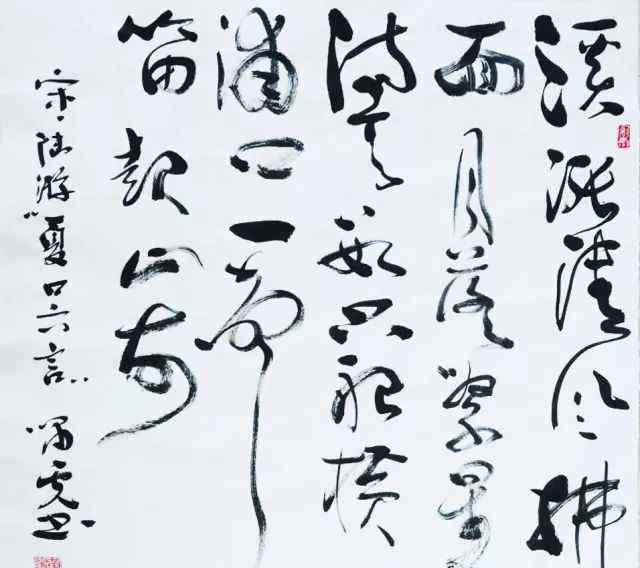 溪涨清风拂
面月落繁星
满天数只船横
浦口一声
笛起山前
宋·陆游"夏日六言" 啸虎书